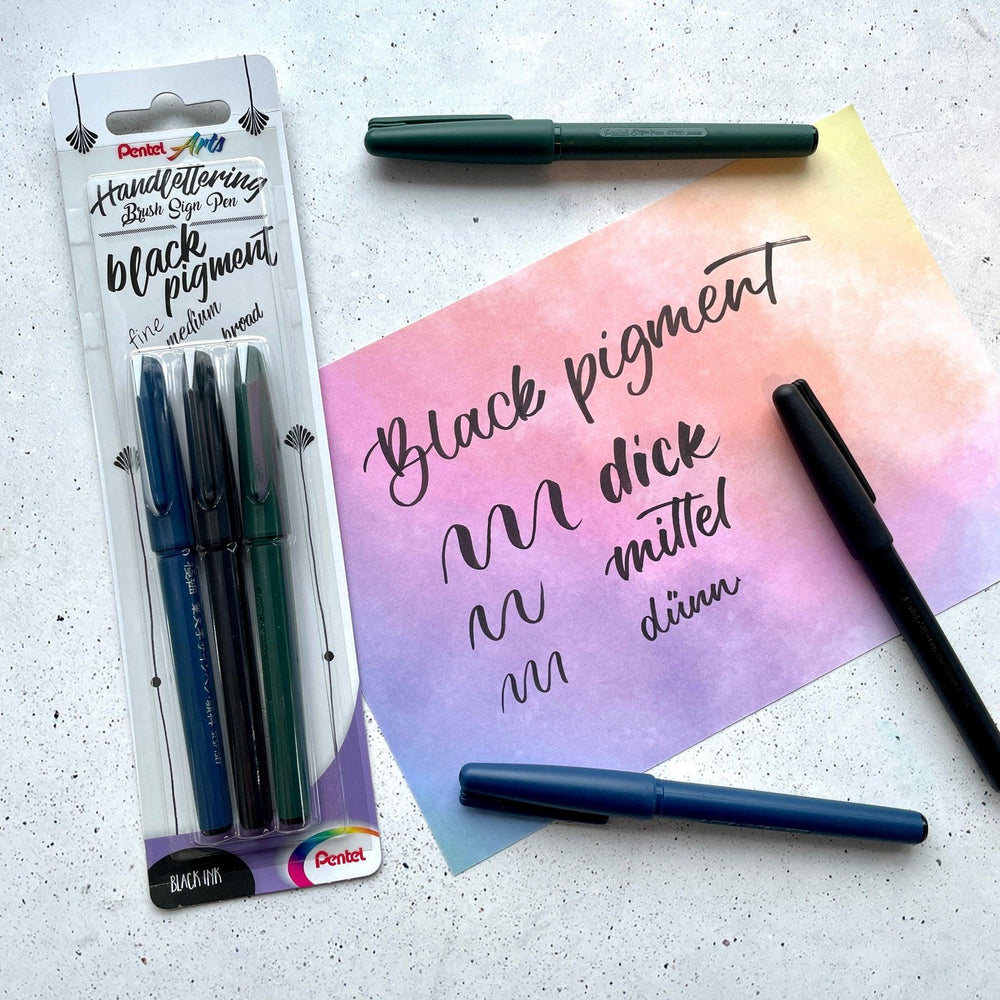 Pentel Arts
Handlettering
Brush Sign Pen
black
pigment
fine
medium
broad
BLACK INK
Pentel
Pentel Sign Pen
Black pigment
dick
mittel
dünn